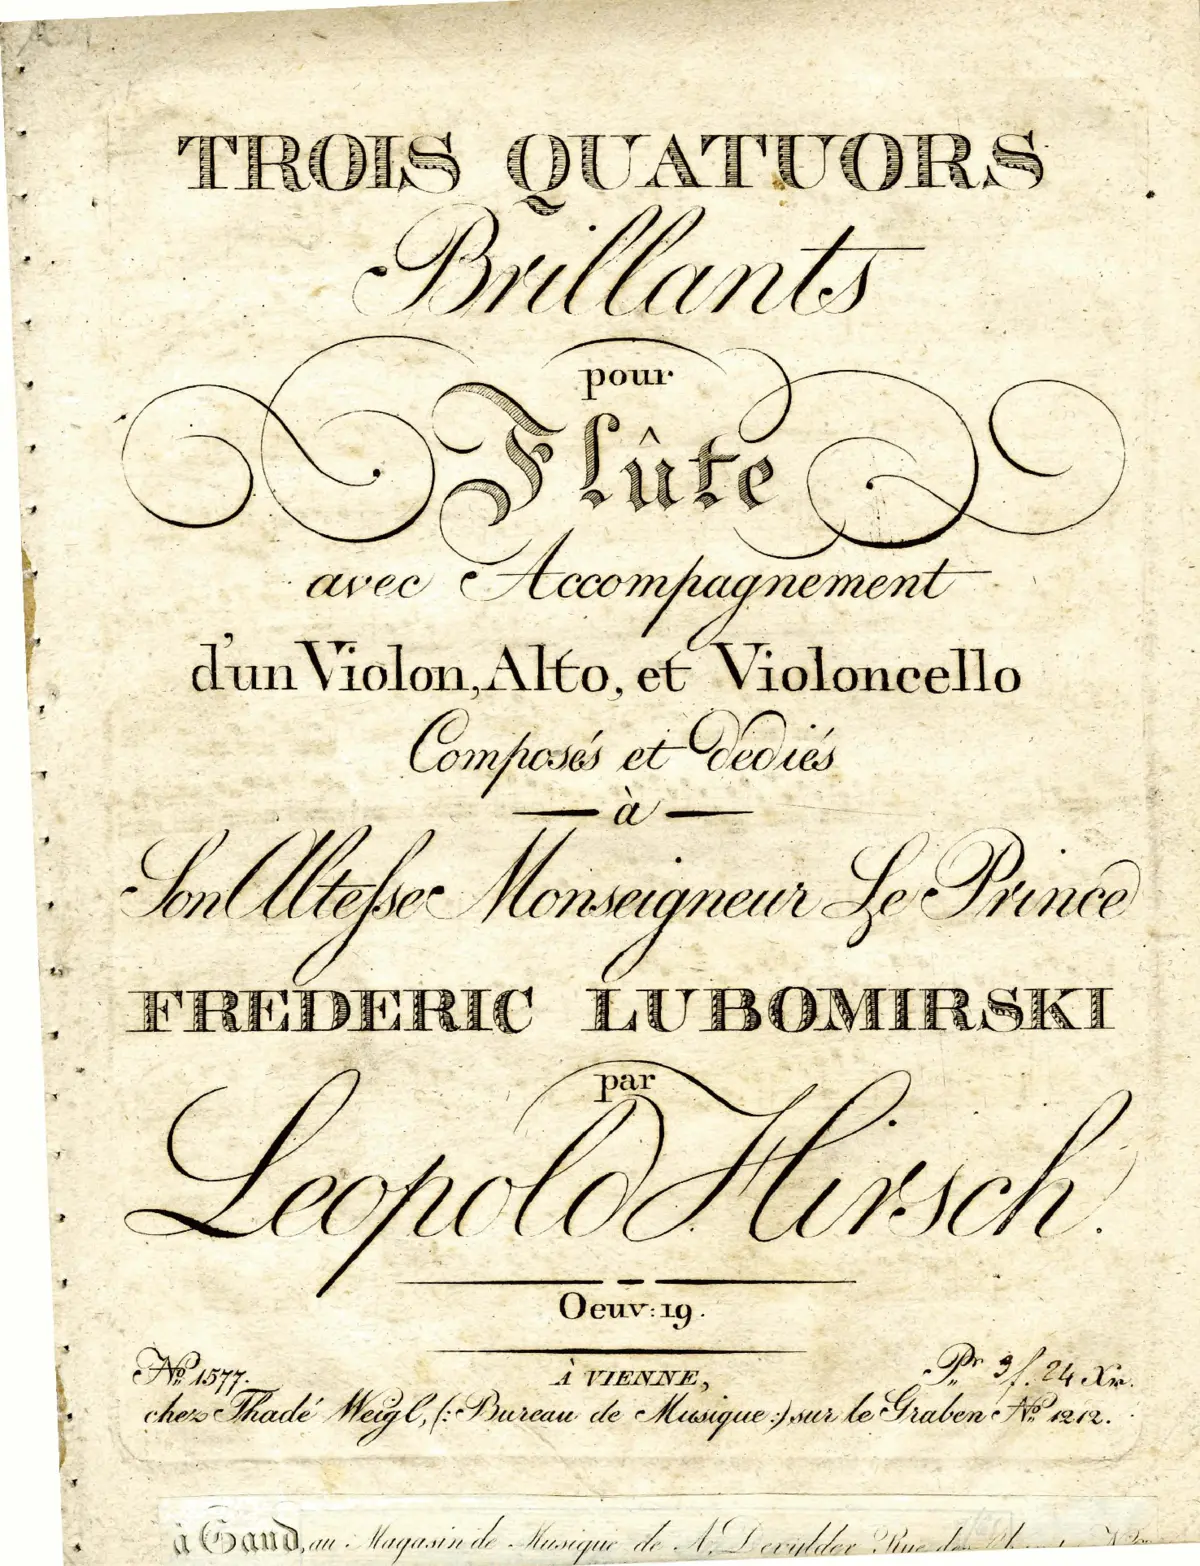 TROIS QUATUORS
Brillants
pour
Flûte
avec Accompagnement
d'un Violon, Alto, et Violoncello
Composés et dediés
à
Son Altesse Monseigneur Le Prince
FREDERIC LUBOMIRSKI
par
Leopold Hirsch.
Oeuv: 19.
No. 1577. À VIENNE, Pr. 3f. 24 Xr.
chez Thadé Weigl, (: Bureau de Musique :) sur le Graben No. 1212.
à Gand, au Magasin de Musique de A. Devylder Rue des